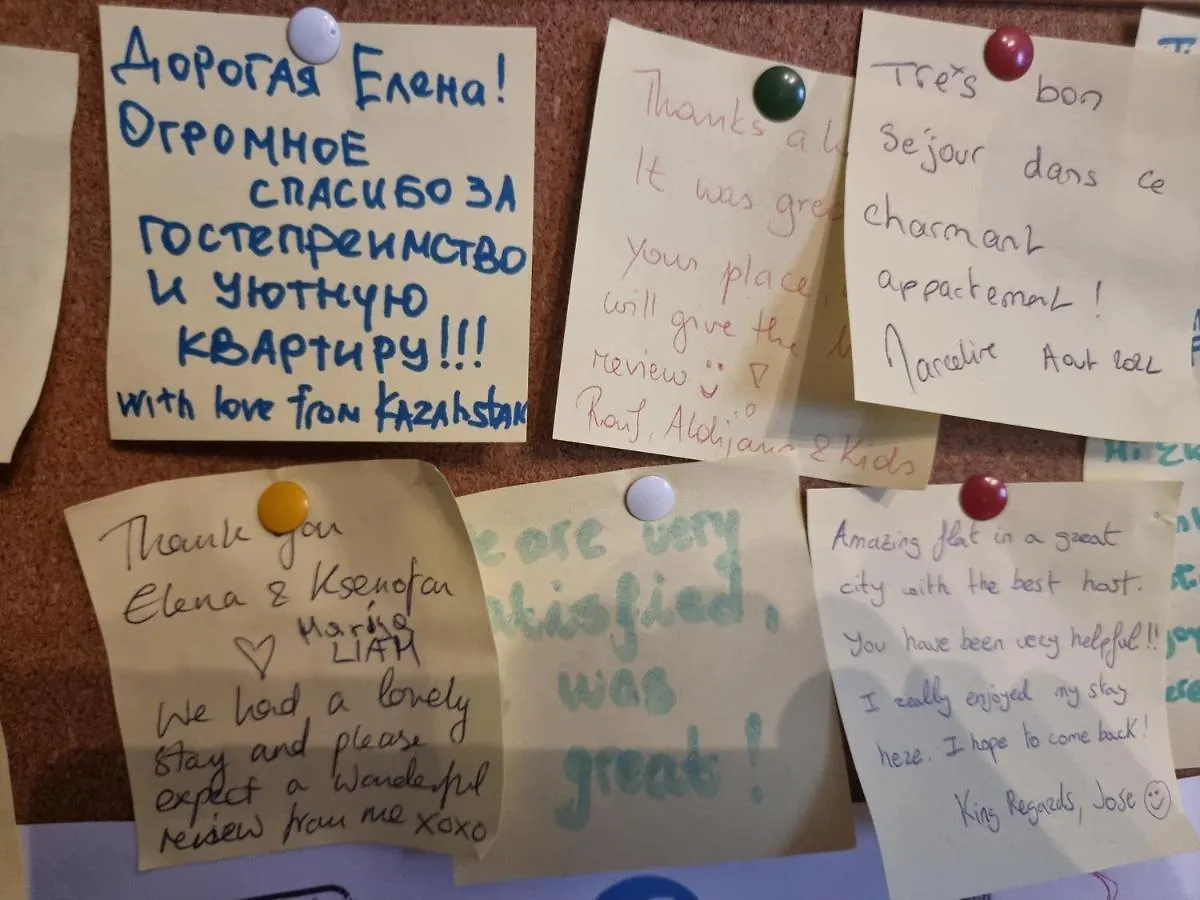 Дорогая Елена!
Огромное
спасибо за
гостепреимство
и уютную
квартиру!!!
with love from Kazahstan
Thanks a
It was
your place,
will give the
review
Rauf, & Kids
Tres bon
Sejour dans ce
charmant
appartement!
Marceline Aout 2022
Thank you
Elena & Ksenofan
Marisa
LIAM
We had a lovely
stay and please
expect a wonderful
review from me xoxo
are very
was
great!
Amazing flat in a great
city with the best host.
You have been very helpful!!
I really enjoyed my stay
here. I hope to come back!
King Regards, Jose